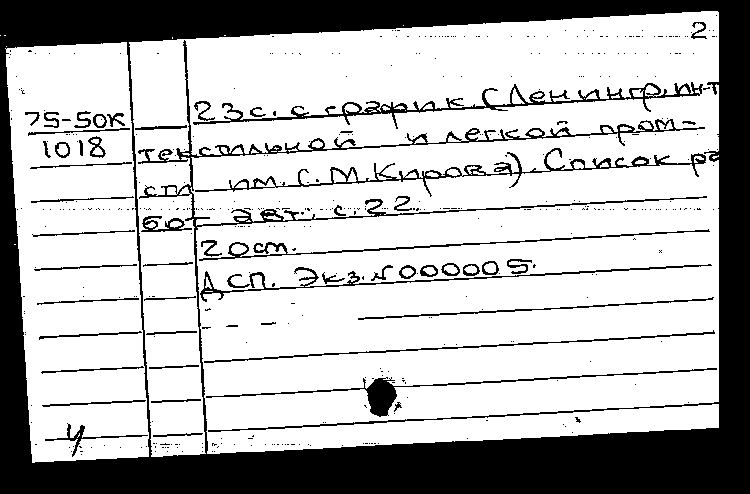 2
23с. с график. (Ленингр. ин-т
75-50К
1018
текстильной и легкой пром-
сти им. С.М.Кирова). Список ра
бот авт.: с.22.
20см.
ДСП. Экз.N000005.